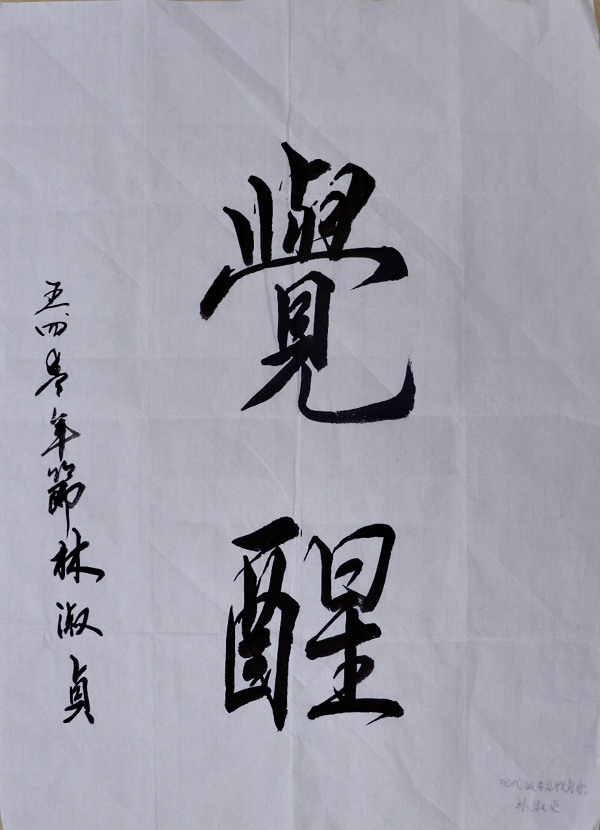 覺醒
五四青年節林淑貞
林淑貞